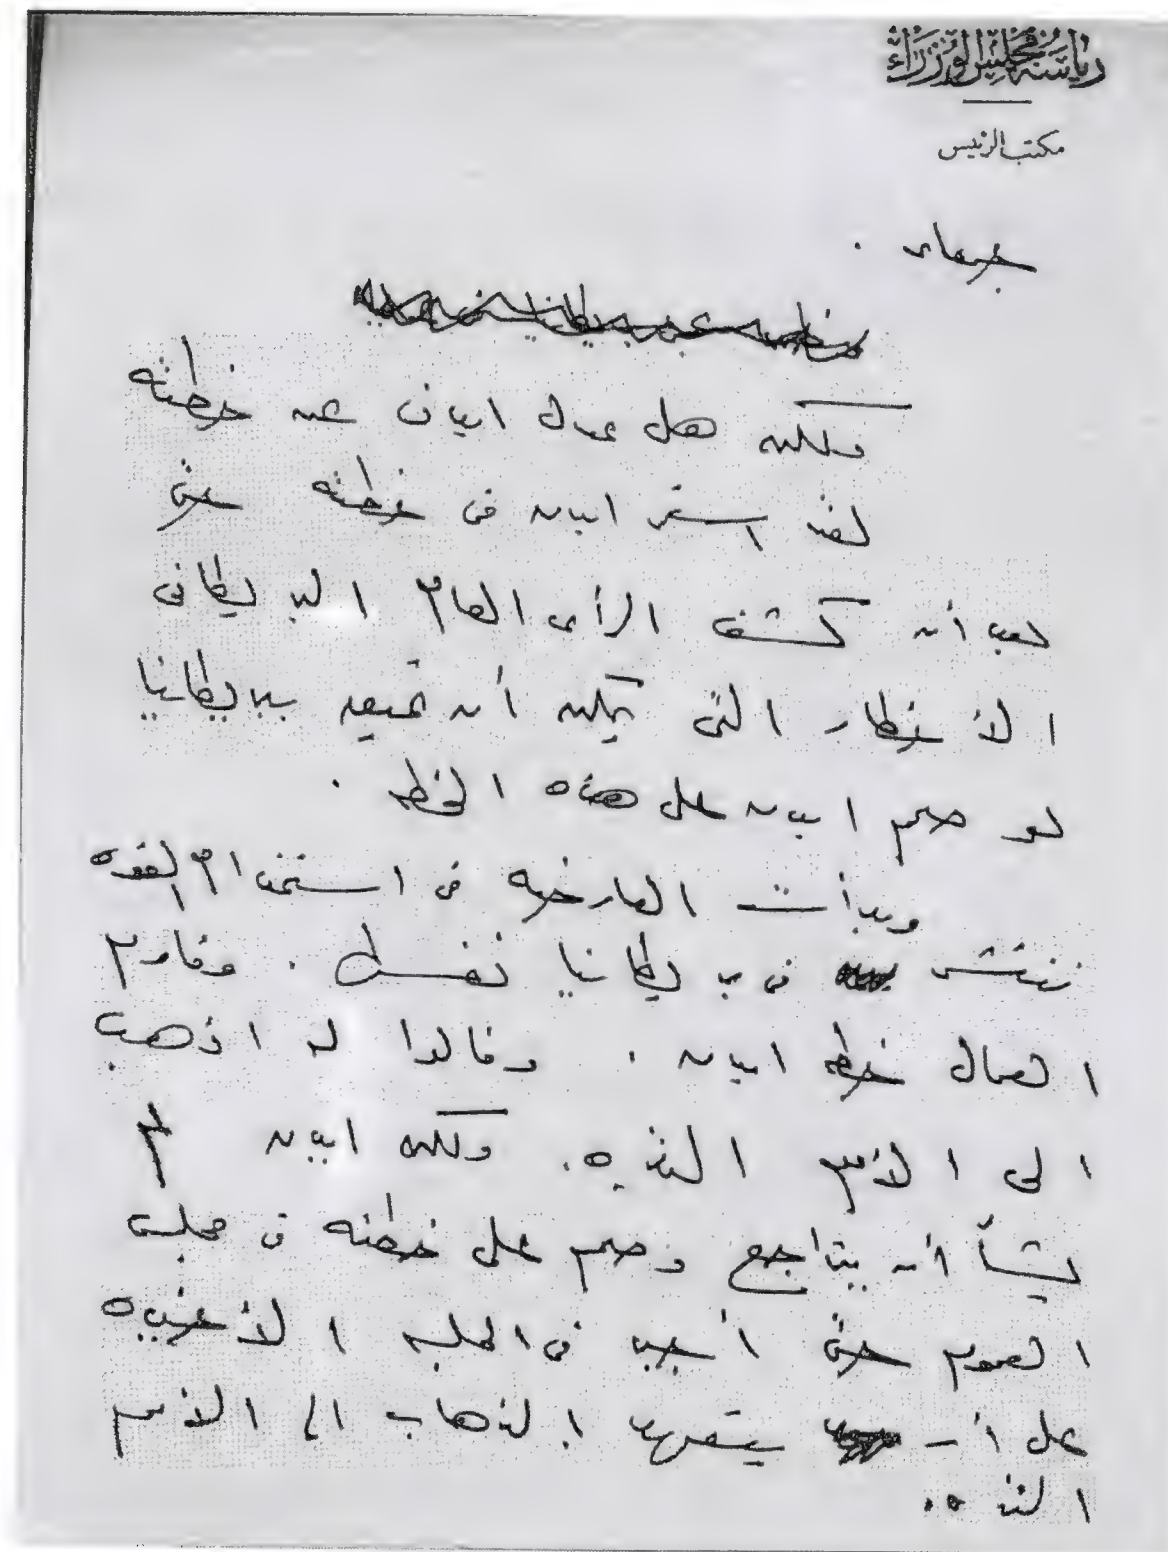 رياسة مجلس الوزراء
مكتب الرئيس
ولكن هل عدل ايدن عن خطته
لقد استمر ايدن فى خطته حتى
بعد أن كشف الرأى العام البريطانى
الأخطار التى يمكن أن تحيق ببريطانيا
لو صمم ايدن على هذه الخطه .
وبدأت المعارضه فى استخدام القوه
تنتشر فى بريطانيا نفسها . وقاوم
العمال خطه ايدن . وقالوا له اذهب
الى الأمم المتحده . ولكن ايدن لم
يشأ أن يتراجع وصمم على خطته فى مجلس
العموم حتى أجبر فى الجلسه الأخيره
على أن يتعهد بالذهاب الى الأمم
المتحده .